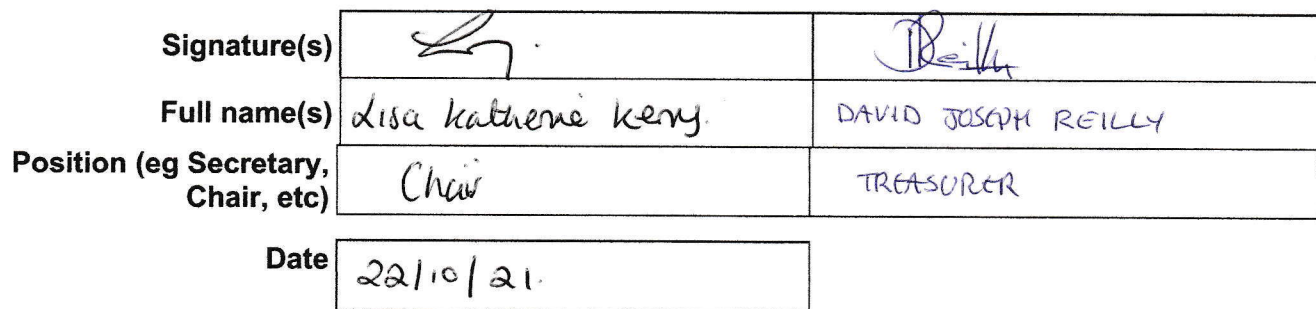 Signature(s) DReilly
Full name(s) Lisa Katherine Kerry. DAVID JOSEPH REILLY
Position (eg Secretary,
Chair, etc) Chair TREASURER
Date 22/10/21.